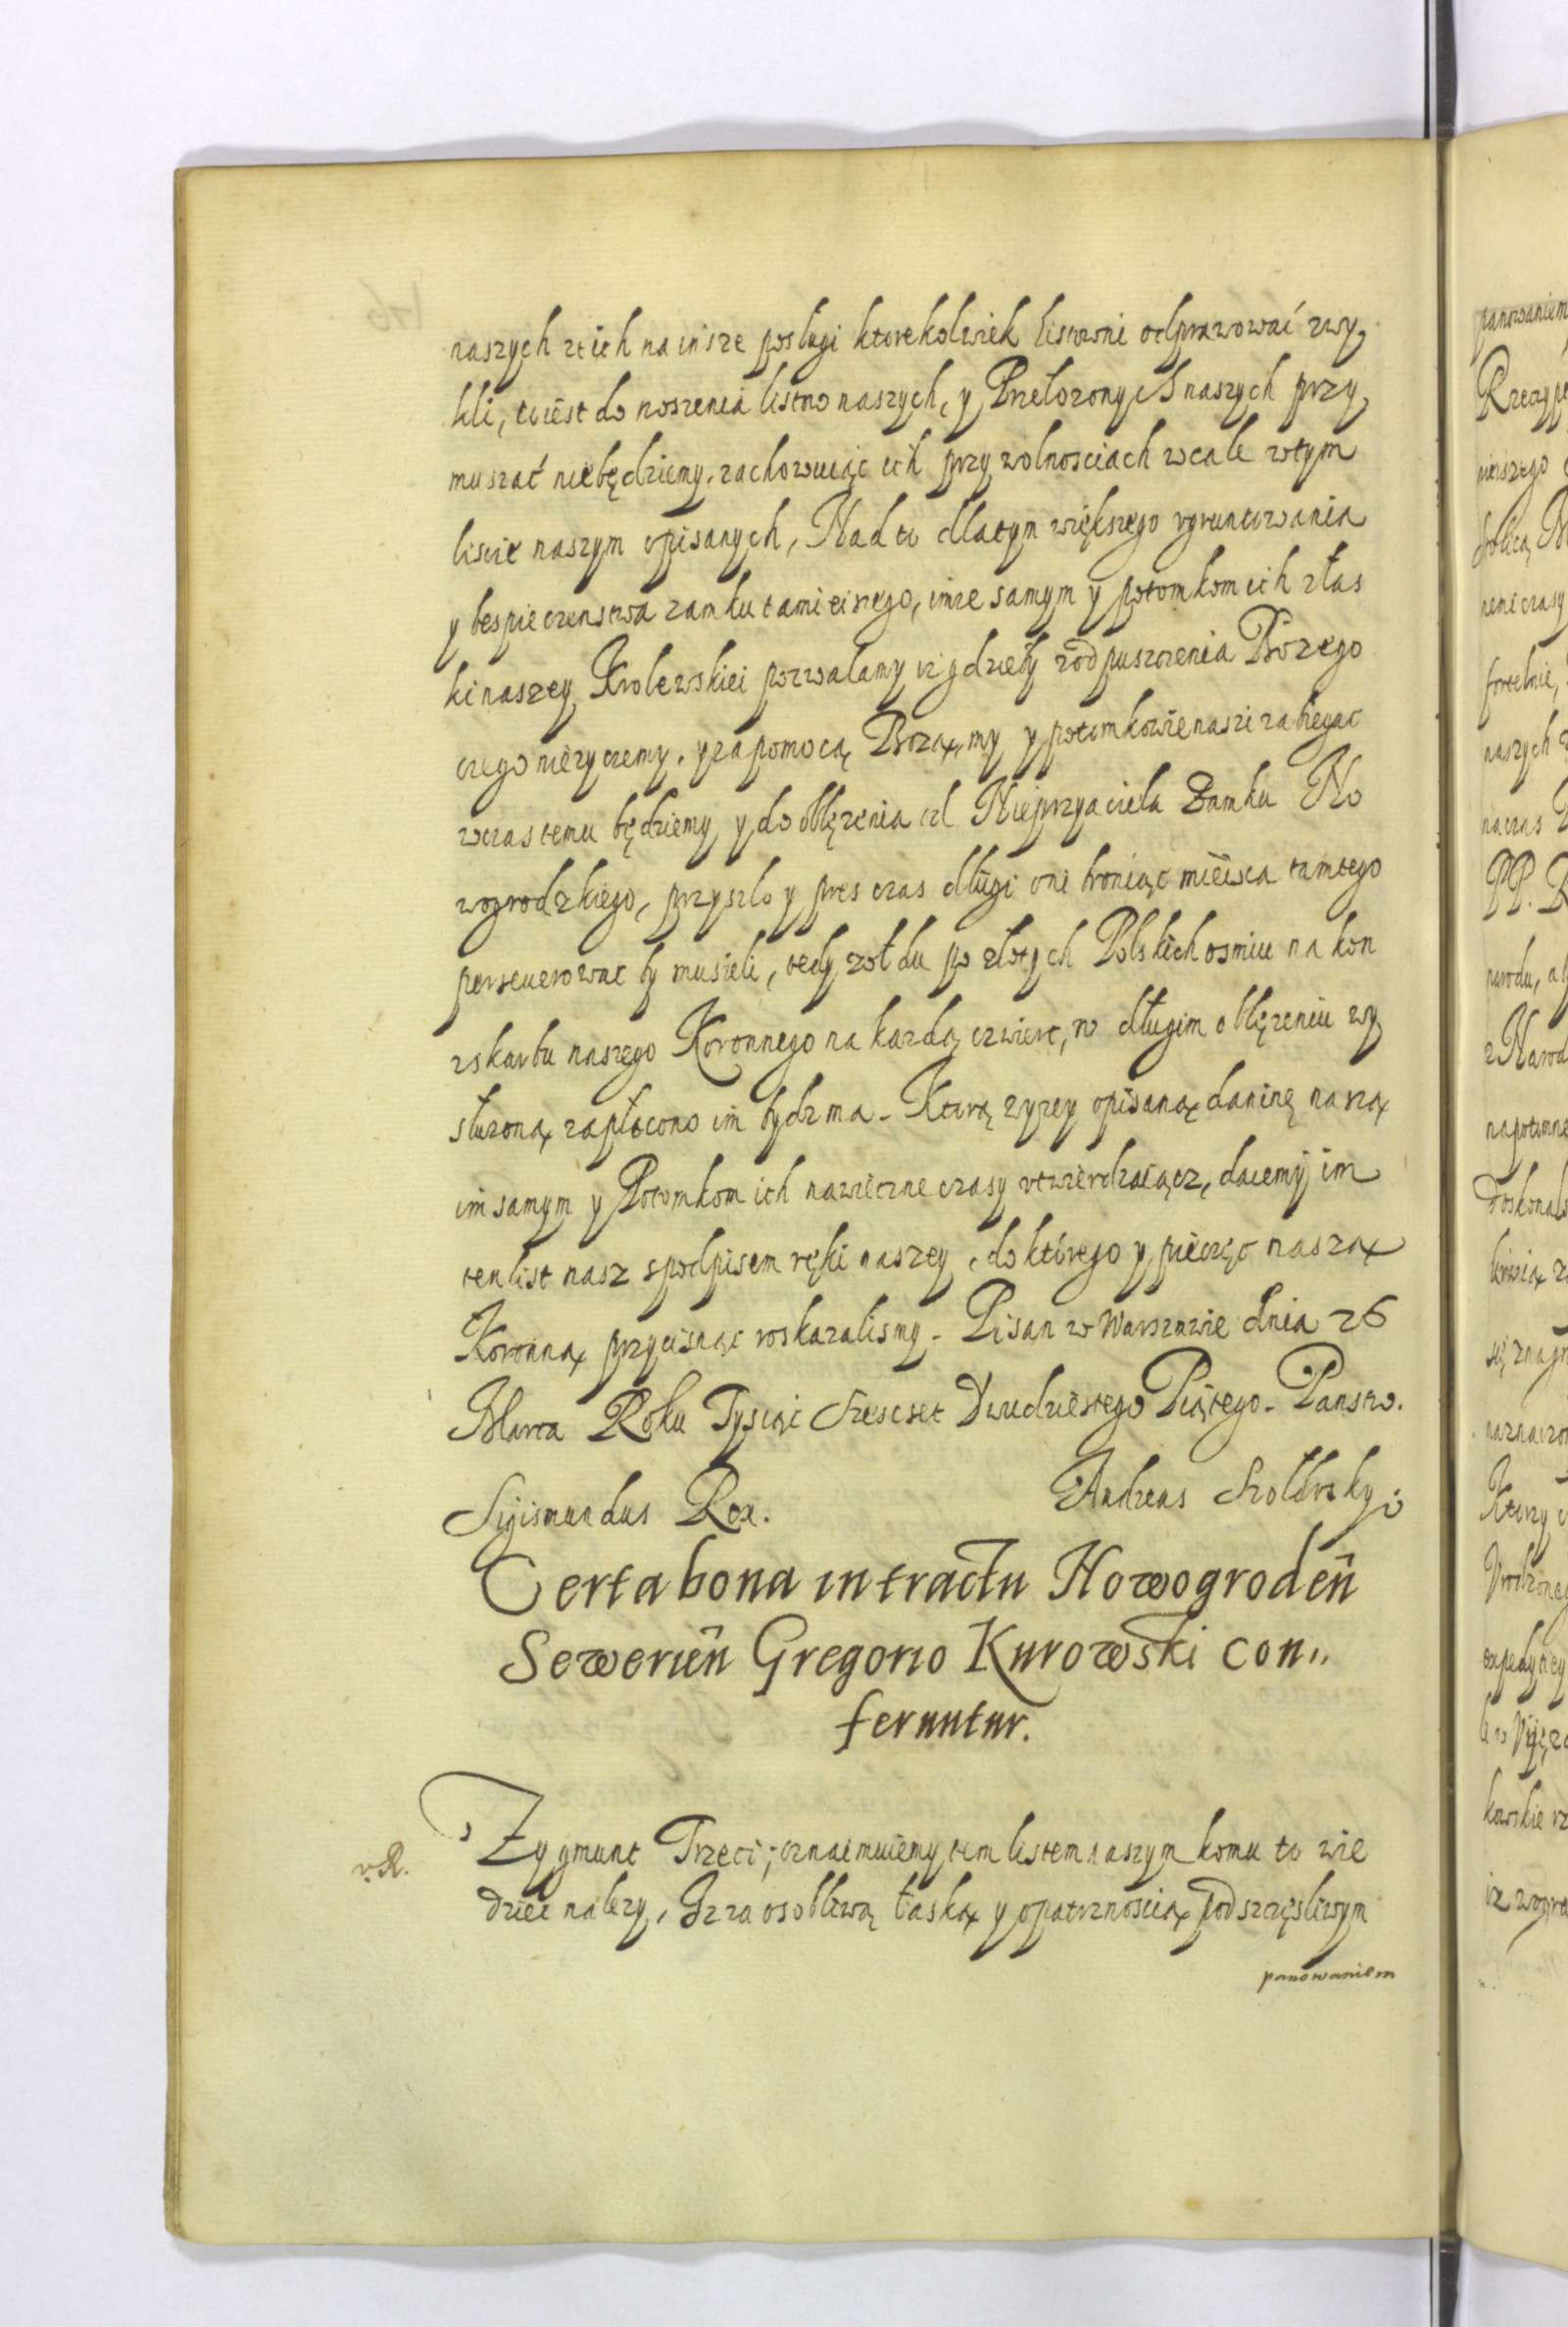 naszych zcich na insze posługi ktorekolwiek listowni odprawować zwy,
kli, to iest do noszenia listno naszych, y Przełozonych naszych przy,
muszać niebędziemy, zachowuiąc ich przy wolnosciach wcale wtym
liscie naszym opisanych, Nad to dlatym większego vgruntowania
y bespieczenstwa zamku tamieisnego, imze samym y potomkom ich złas
ki naszey Krolewskiei pozwalamy iz gdzieby zodpuszczenia Bozego
czego nieżyczemy, y za pomocą Bozą, my y potomkowie naszi zabiegac
wczas temu będziemy y do oblęzenia od Nieprzyaciela Zamku No
wogrodzkiego, przyszlo y pres czas długi oni broniąc mieisca tamtego
perseuerowac by musieli, tedy zołdu po złotych Polskich osmiu na kon
zskarbu naszego Koronnego na kazdą czwierc, w długim oblęzeniu wy
słuzoną zapłocono im bydz ma - Ktorą wyzey opisaną daninę naszą
im samym y Potomkom ich nawieczne czasy vtwierdzaiącz, daiemy im
ten list nasz spodpisem ręki naszey, do ktorego y pieczęc naszą
Koronną przycisnąc roskazalismy - Pisan w Warszawie dnia 26
Marca Roku Tysiąc Szescset Dwudziestego Piątego - Panstw.
Sigismundus Rex. Andreas Szołdrsky
Certa bona in tractu Nowogrodeñ
Sewerieñ Gregorio Kurowski con,,
feruntur.
v. R. Zygmunt Trzeci; oznaimuiemy tem listem naszym komu to wie
dziec nalezy, Iz za osobliwą łaską y opatrznoscią pod szczęsliwym
panowaniem